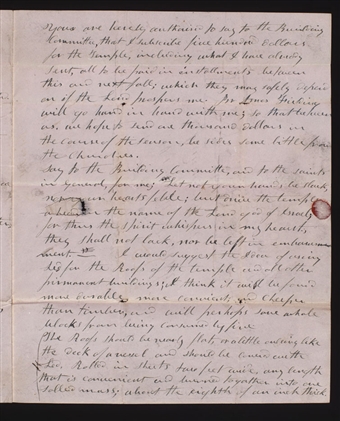 You are hereby authorized to say to the Building
Committee, that I subscribe five hundred Dollars
for the Temple, including what I have already
sent, all to be paid in installments between
this and next fall, which they may safely depend
on if the Lord prospers me. Br
will go hand in hand with me; so that between
us, we hope to send one thousand dollars in
the course of the season, be sides some little from
the Churches.
Say to the Building Committee, and to the saints
in general, for me; let not your hands be slack
nor your hearts feble; but raise the temple
in the name of the Lord God of Israel;
for thus the spirit whispers in my heart,
they shall not lack, nor be left in embarrass
ment. I would suggest the Idea of using
led for the Roofs of the temple and all other
permanant buildings; I think it will be found
more durable, more convenient, and cheaper
than timber, and will perhaps save whole
blocks from being consumed by fire
The Roof should be nearly flat, or a little ovaling like
the deck of a vessel and should be covered with
Led. Rolled in sheets two feet wide, any length
that is convenient and burned together into one
solled mass; about the eighth of an inch thick.